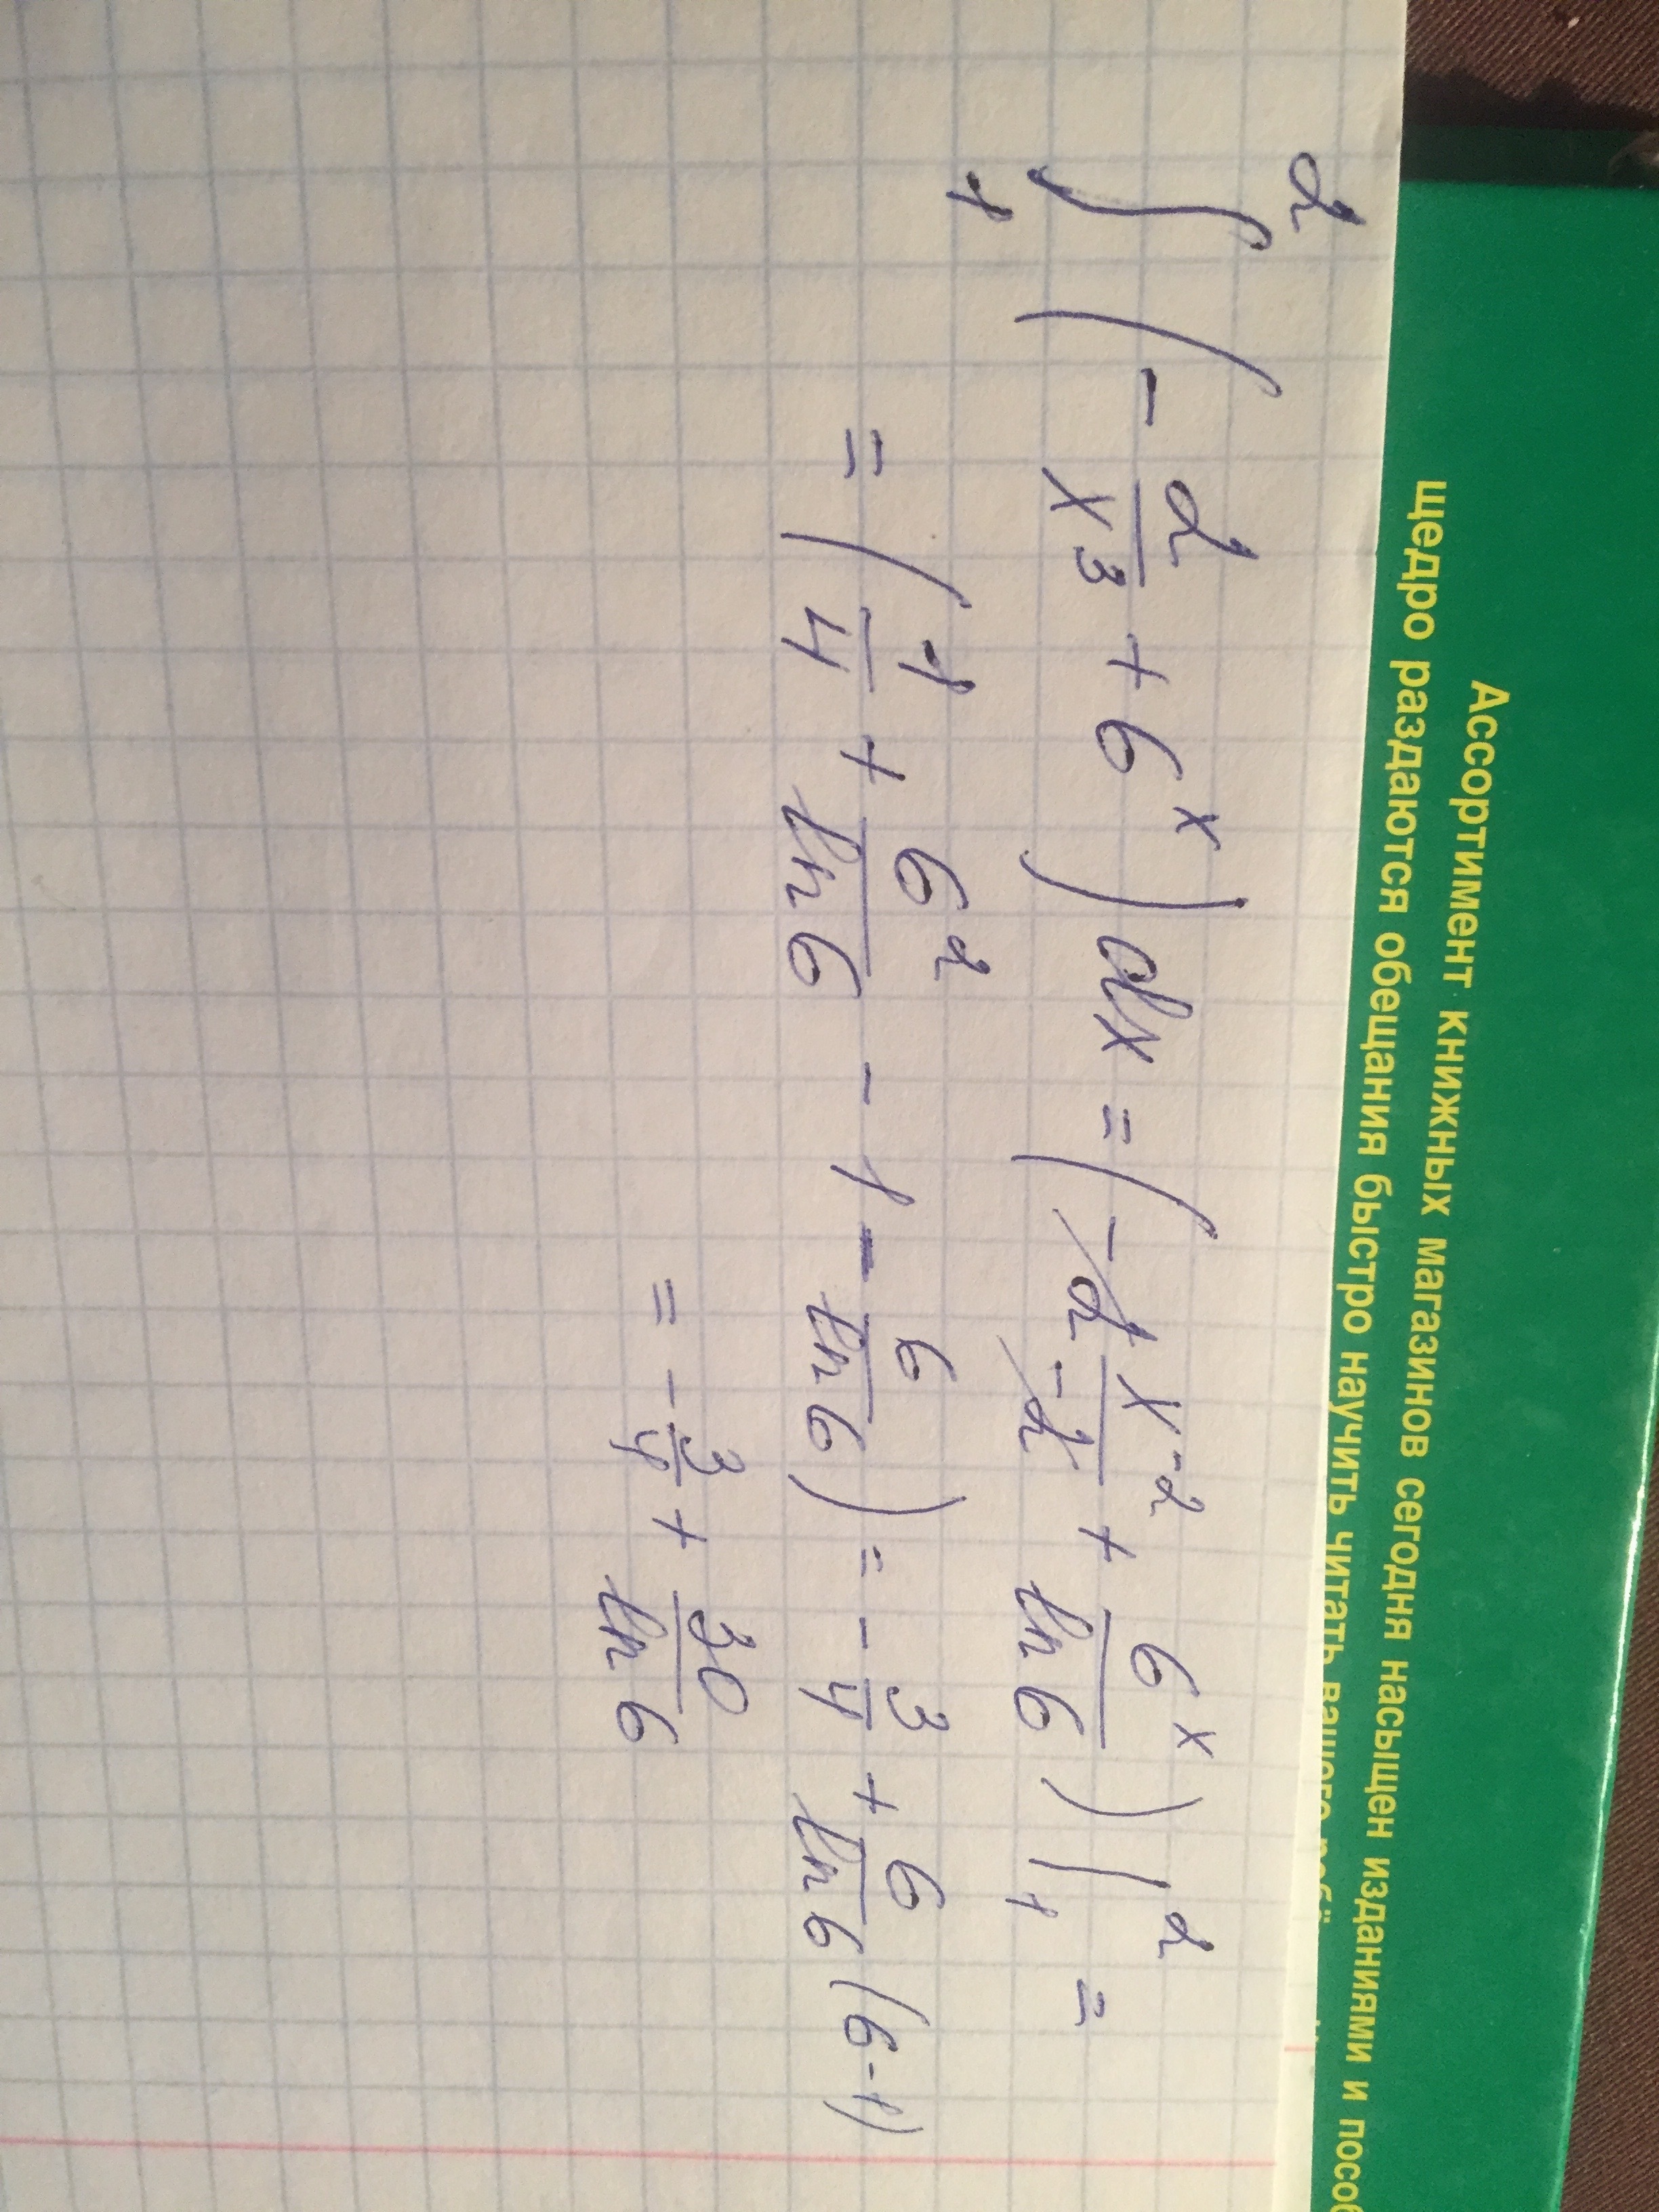 Ассортимент книжных магазинов сегодня насыщен изданиями и пособ
щедро раздаются обещания быстро научить читать вашего
∫₁² (-2/x³ + 6ˣ) dx = (-2 x⁻²/-2 + 6ˣ/ln 6) |₁² =
= (1/4 + 6²/ln 6 - 1 - 6/ln 6) = -3/4 + 6/ln 6 (6-1)
= -3/4 + 30/ln 6